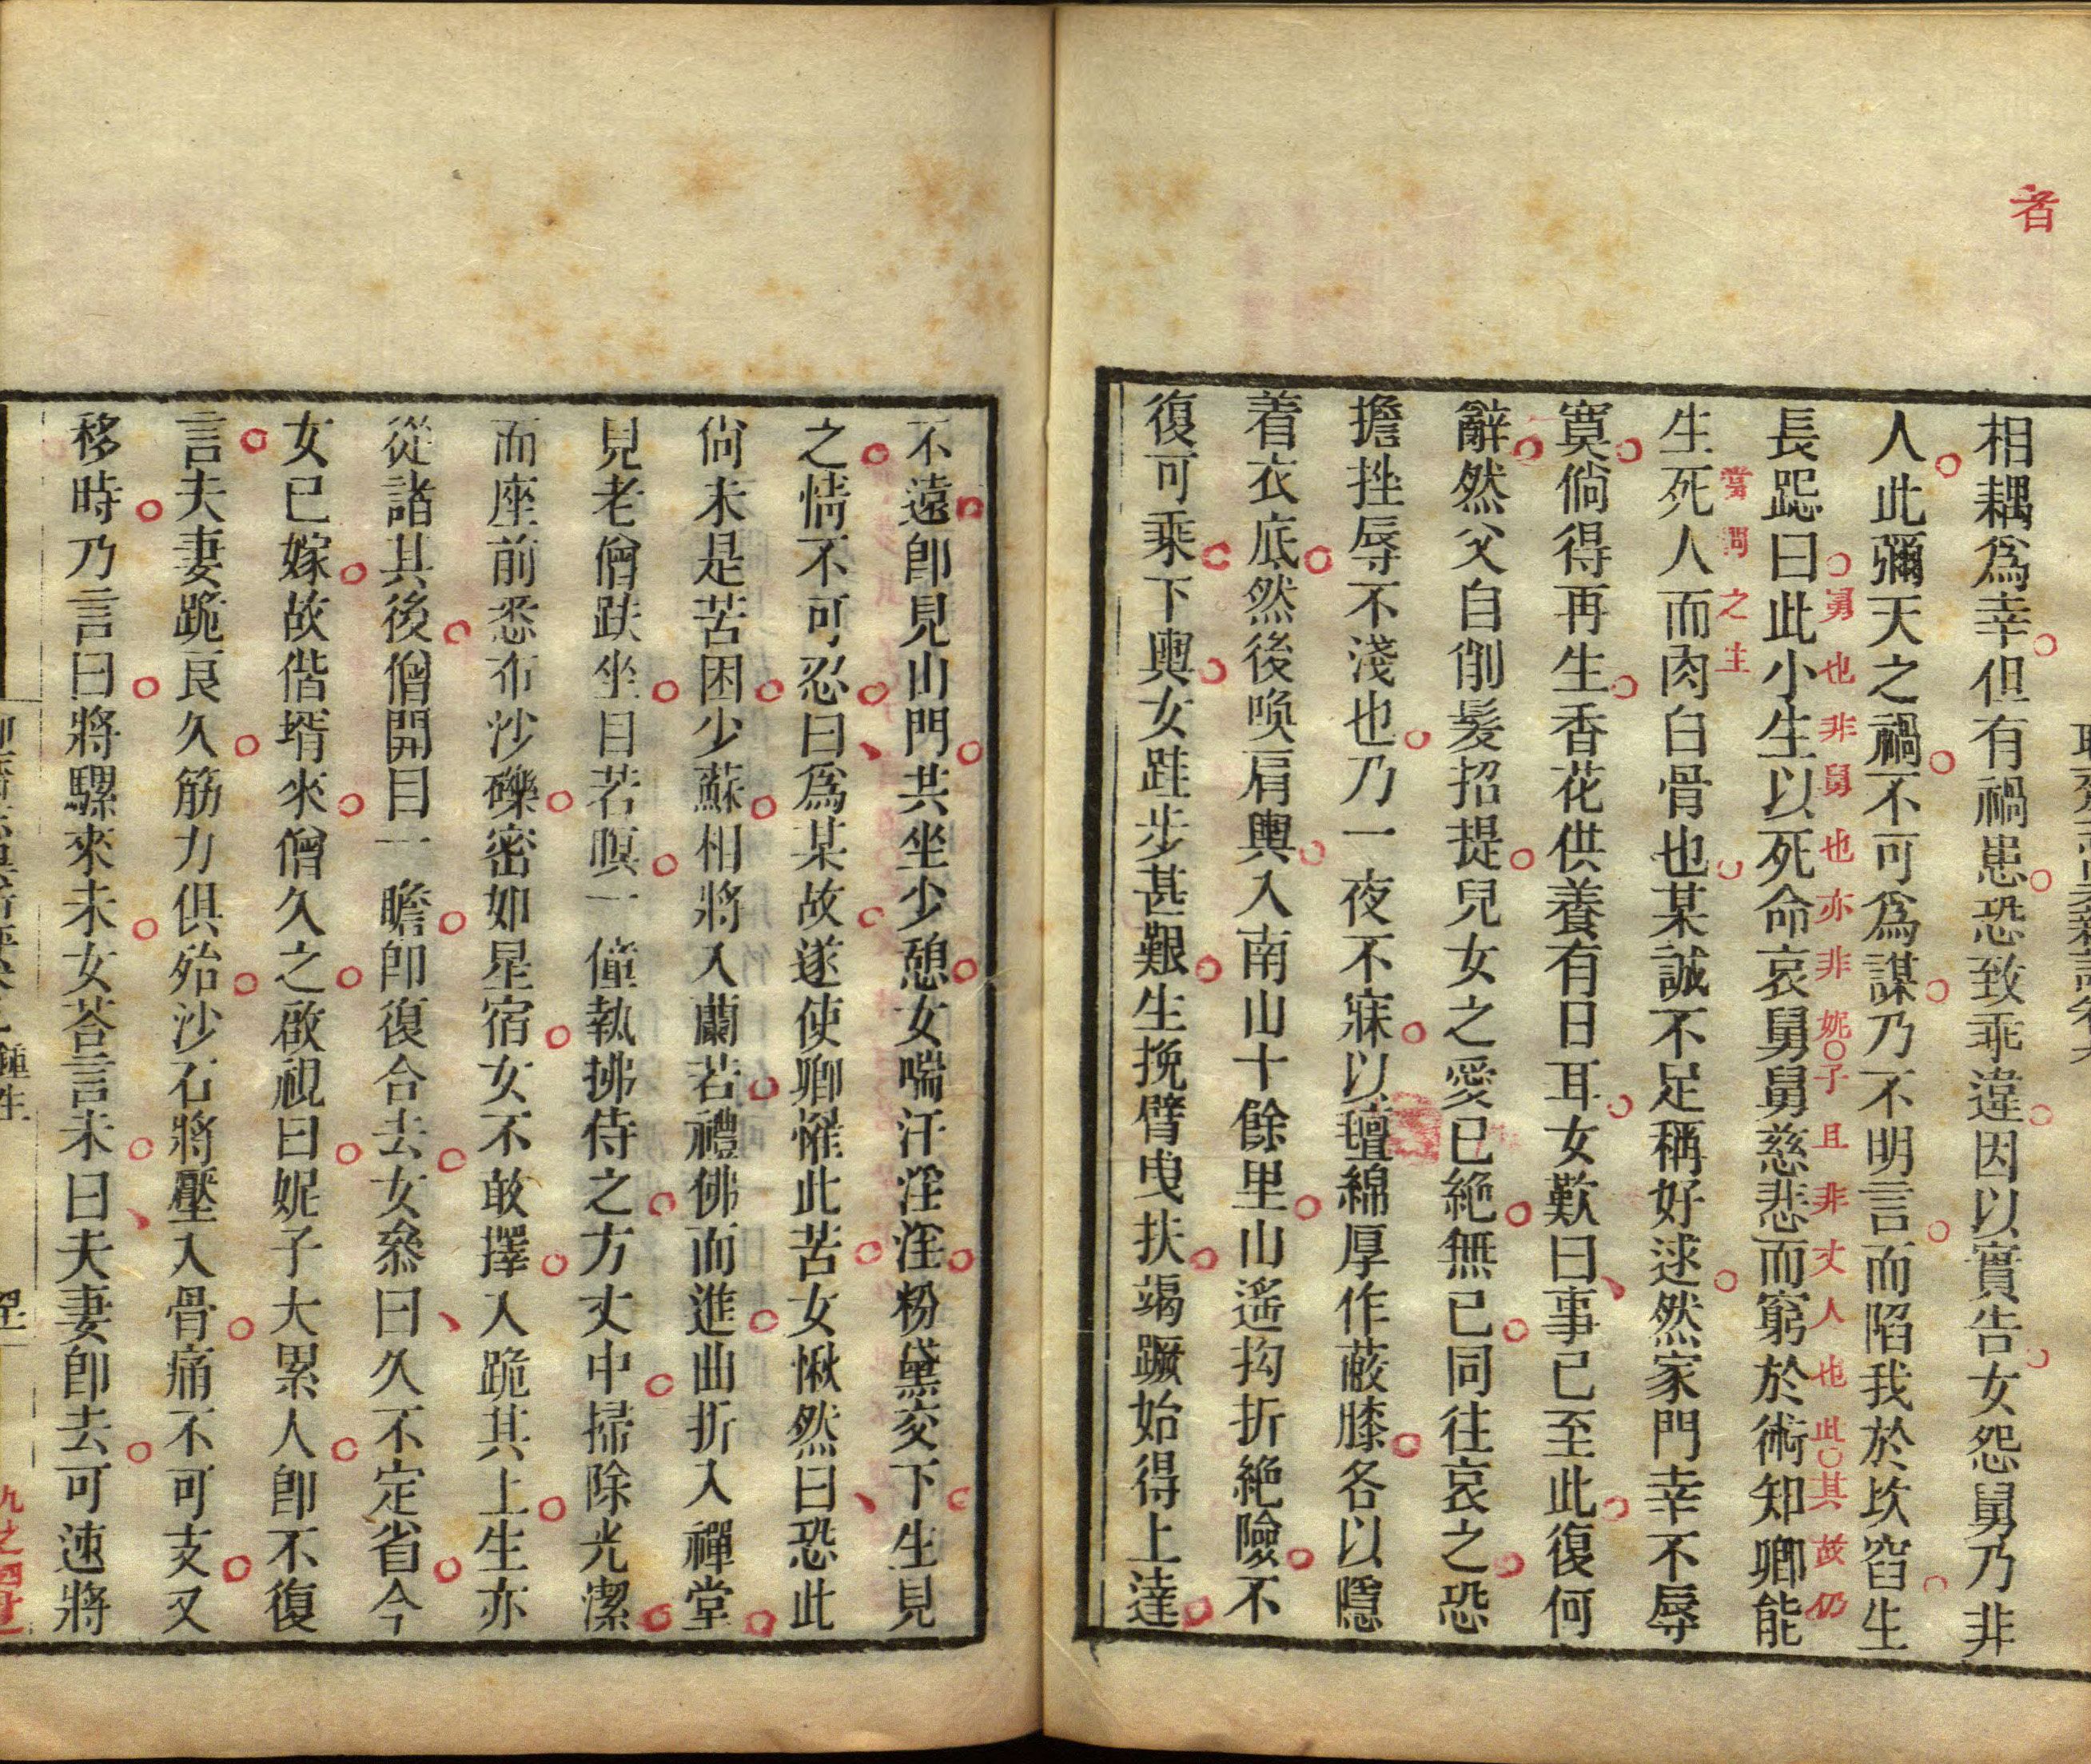 者
相耦爲幸但有禍患恐致乖違因以實告女怨舅乃非
人此彌天之禍不可爲謀乃不明言而陷我於坎窞生
長跽曰此小生以死命哀舅舅慈悲而窮於術知卿能
舅也非舅也亦非妮子且非丈人也此其故仍
生死人而肉白骨也某誠不足稱好逑然家門幸不辱
當問之主
寞倘得再生香花供養有日耳女歎曰事已至此復何
辭然父自削髮招提兒女之愛已絶無已同往哀之恐
擔挫辱不淺也乃一夜不寐以氊綿厚作蔽膝各以隱
着衣底然後喚肩輿入南山十餘里山遙拗折絶險不
復可乘下輿女跬步甚艱生挽臂曳扶竭蹶始得上達
不遠卽見山門共坐少憩女喘汗淫淫粉黛交下生見
之情不可忍曰爲某故遂使卿罹此苦女愀然曰恐此
尙未是苦困少蘇相將入蘭若禮佛而進曲折入禪堂
見老僧趺坐目若瞑一僮執拂侍之方丈中掃除光潔
而座前悉布沙礫密如星宿女不敢擇入跪其上生亦
從諸其後僧開目一瞻卽復合去女叅曰久不定省今
女已嫁故偕壻來僧久之啟視曰妮子大累人卽不復
言夫妻跪良久筋力俱殆沙石將壓入骨痛不可支又
移時乃言曰將騾來未女荅言未曰夫妻卽去可速將
鍾生
九之四十七